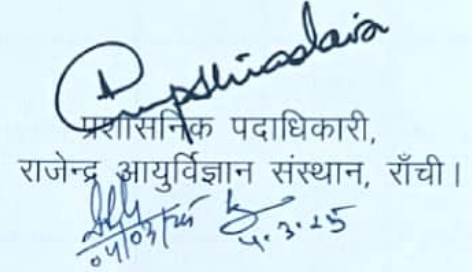 प्रशासनिक पदाधिकारी,
राजेन्द्र आयुर्विज्ञान संस्थान, राँची।
04/03/25 4.3.25